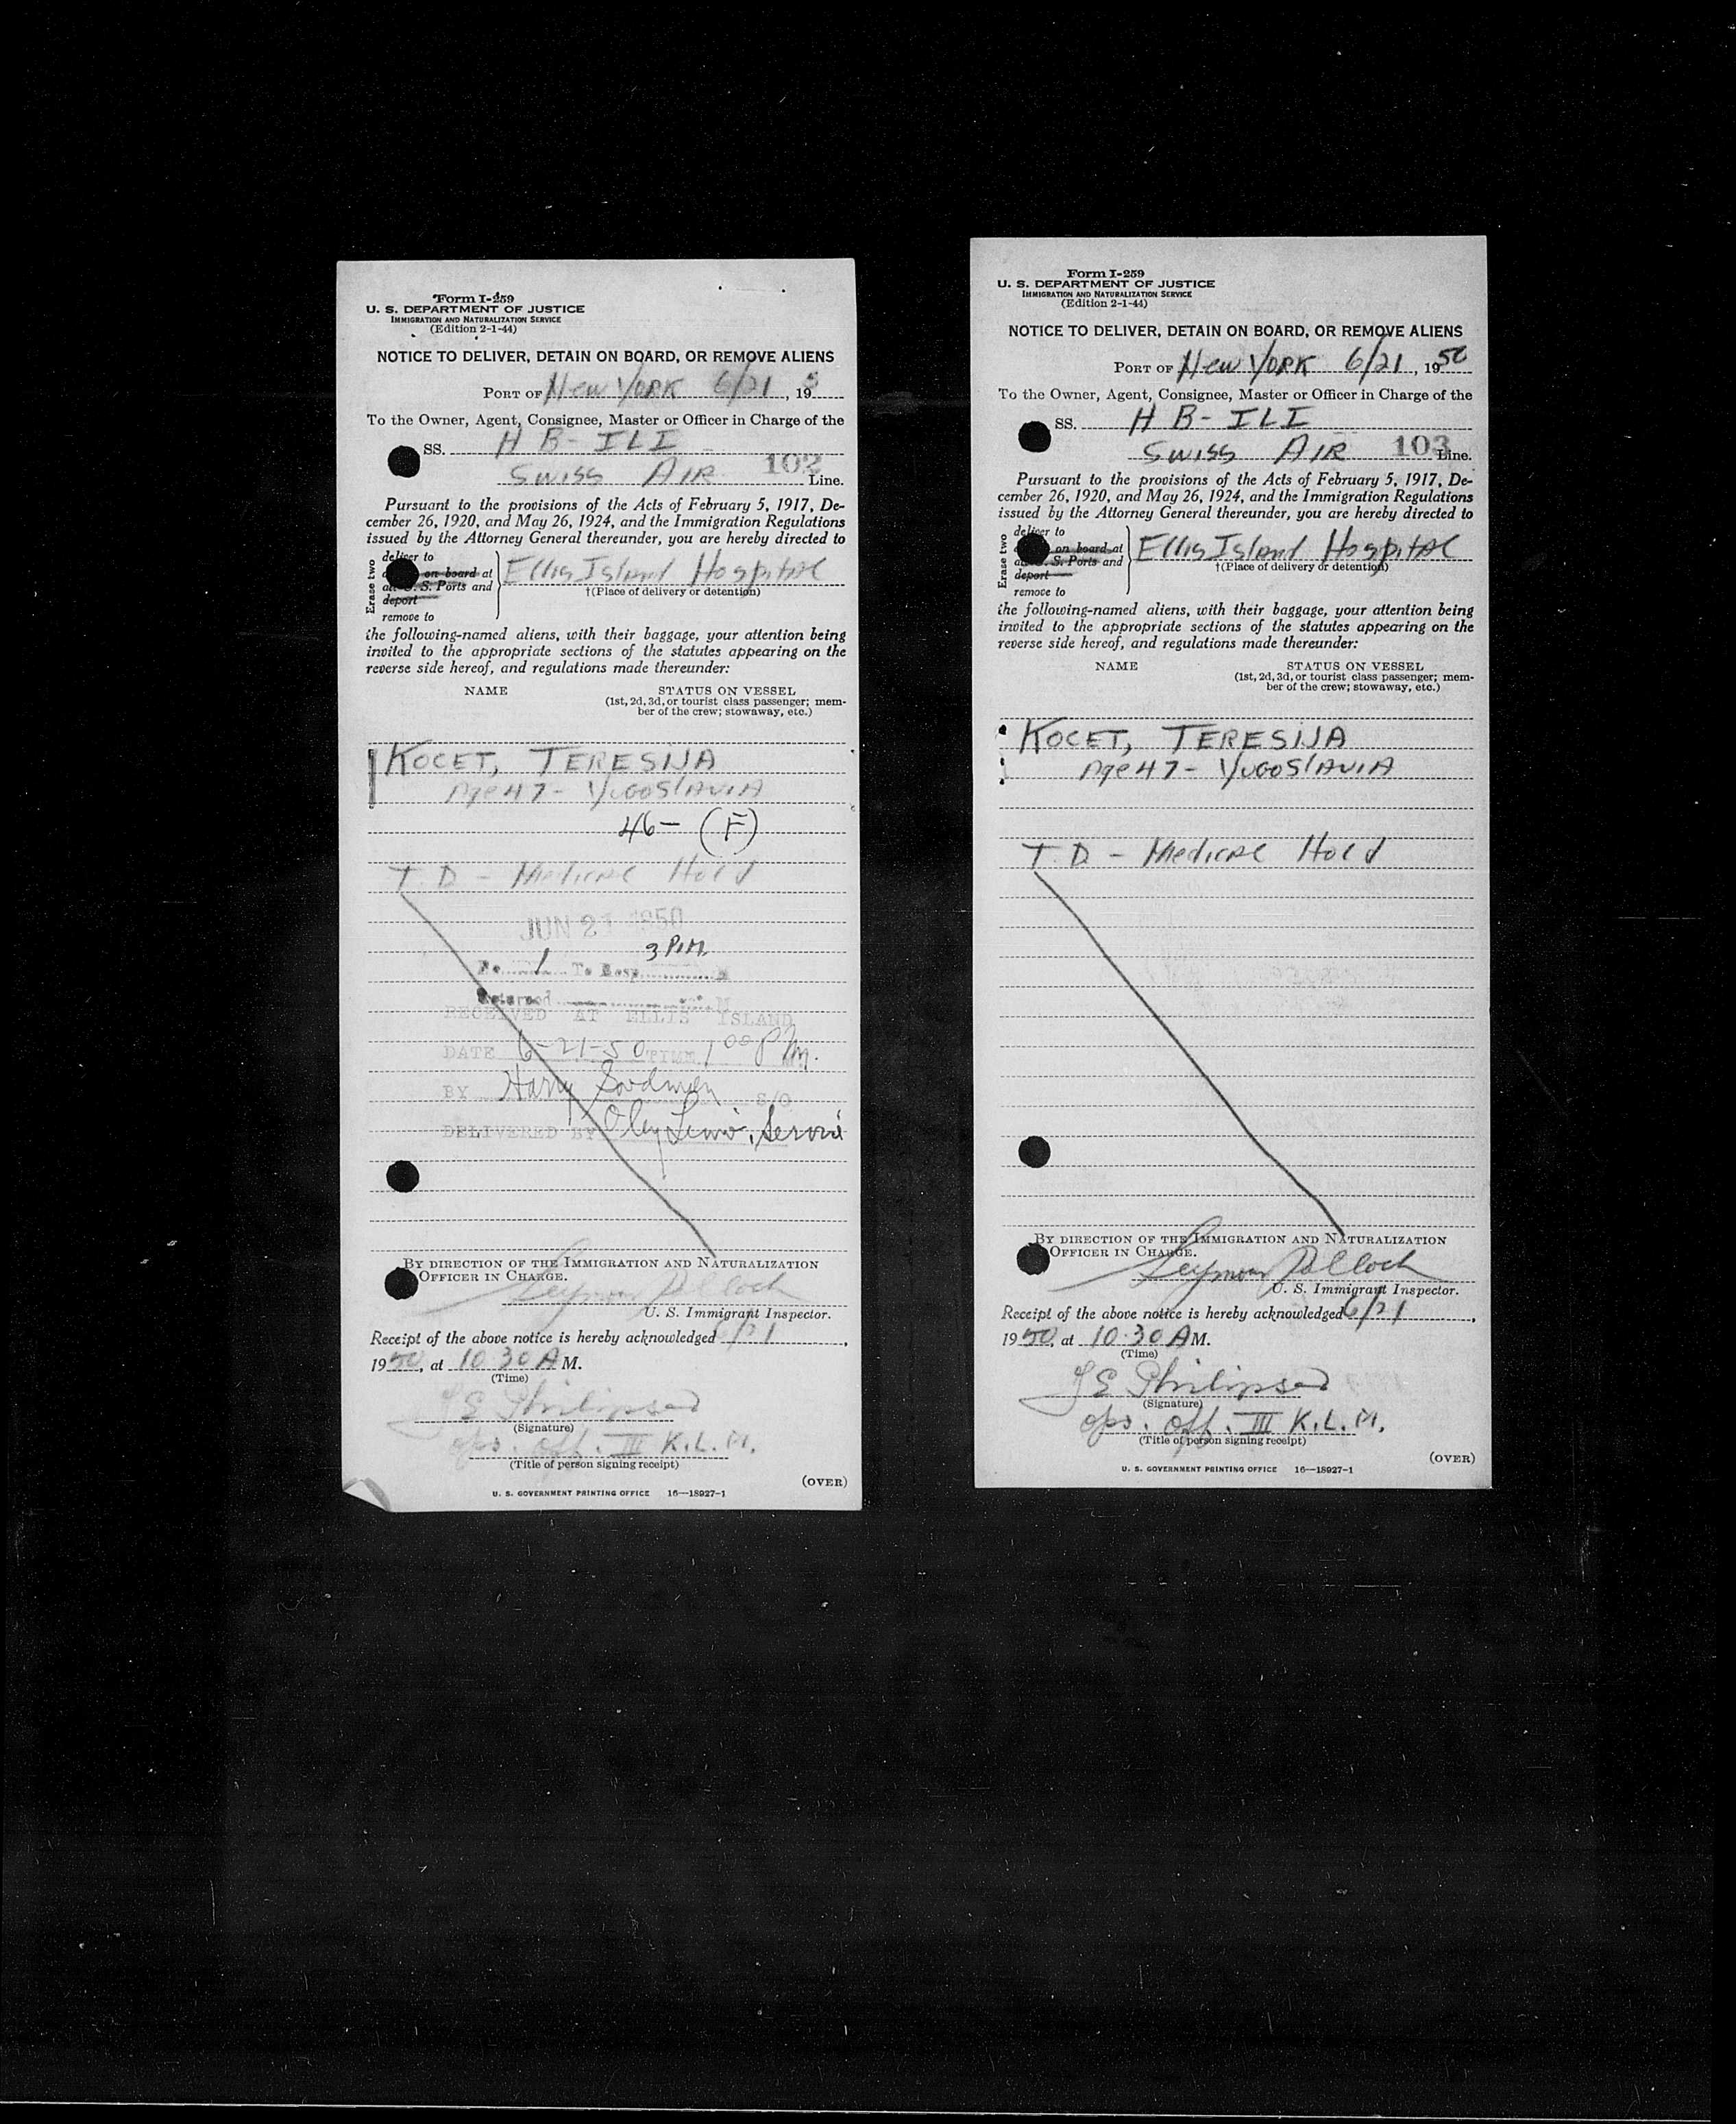 Form I-259
U. S. DEPARTMENT OF JUSTICE
IMMIGRATION AND NATURALIZATION SERVICE
(Edition 2-1-44)
NOTICE TO DELIVER, DETAIN ON BOARD, OR REMOVE ALIENS
PORT OF New York 6/21, 195
To the Owner, Agent, Consignee, Master or Officer in Charge of the
SS. H B - ILI
Swiss Air 102 Line.
Pursuant to the provisions of the Acts of February 5, 1917, De-
cember 26, 1920, and May 26, 1924, and the Immigration Regulations
issued by the Attorney General thereunder, you are hereby directed to
Erase two
deliver to
on board at
S. Ports and
deport
remove to
Ellis Island Hospital
†(Place of delivery or detention)
the following-named aliens, with their baggage, your attention being
invited to the appropriate sections of the statutes appearing on the
reverse side hereof, and regulations made thereunder:
NAME STATUS ON VESSEL
(1st, 2d, 3d, or tourist class passenger; mem-
ber of the crew; stowaway, etc.)
KOCET, TERESIJA
Age 47 - Yugoslavia
46 - (F)
T. D - Medical Hold
JUN 21 1950
3 P.M.
1 To Hosp. M
Returned N
RECEIVED AT ELLIS ISLAND
DATE 6-21-50 TIME 1 00 P M.
BY Harry S/O
DELIVERED BY
BY DIRECTION OF THE IMMIGRATION AND NATURALIZATION
OFFICER IN CHARGE.
Seymour Pollock
U. S. Immigrant Inspector.
Receipt of the above notice is hereby acknowledged 6/21,
1950, at 10:30 A M.
(Time)
(Signature)
ops. off. III K.L.M.
(Title of person signing receipt)
(OVER)
U. S. GOVERNMENT PRINTING OFFICE 16—18927-1
Form I-259
U. S. DEPARTMENT OF JUSTICE
IMMIGRATION AND NATURALIZATION SERVICE
(Edition 2-1-44)
NOTICE TO DELIVER, DETAIN ON BOARD, OR REMOVE ALIENS
PORT OF New York 6/21, 1950
To the Owner, Agent, Consignee, Master or Officer in Charge of the
SS. H B - ILI
Swiss Air 103 Line.
Pursuant to the provisions of the Acts of February 5, 1917, De-
cember 26, 1920, and May 26, 1924, and the Immigration Regulations
issued by the Attorney General thereunder, you are hereby directed to
Erase two
deliver to
on board at
S. Ports and
deport
remove to
Ellis Island Hospital
†(Place of delivery or detention)
the following-named aliens, with their baggage, your attention being
invited to the appropriate sections of the statutes appearing on the
reverse side hereof, and regulations made thereunder:
NAME STATUS ON VESSEL
(1st, 2d, 3d, or tourist class passenger; mem-
ber of the crew; stowaway, etc.)
KOCET, TERESIJA
Age 47 - Yugoslavia
T. D - Medical Hold
BY DIRECTION OF THE IMMIGRATION AND NATURALIZATION
OFFICER IN CHARGE.
Seymour Pollock
U. S. Immigrant Inspector.
Receipt of the above notice is hereby acknowledged 6/21,
1950, at 10:30 A M.
(Time)
(Signature)
ops. off. III K.L.M.
(Title of person signing receipt)
(OVER)
U. S. GOVERNMENT PRINTING OFFICE 16—18927-1